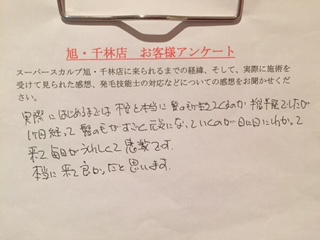 旭・千林店 お客様アンケート
スーパースカルプ旭・千林店に来られるまでの経緯、そして、実際に施術を
受けて見られた感想、発毛技能士の対応などについての感想をお聞かせくだ
さい。
実際にはじめるまでは 本当に 髪の
1ヶ月経って 髪の毛がすごく元気になっていくのが日に日にわかって
来て毎日がうれしくて 感激です。
本当に来て良かったと思います。